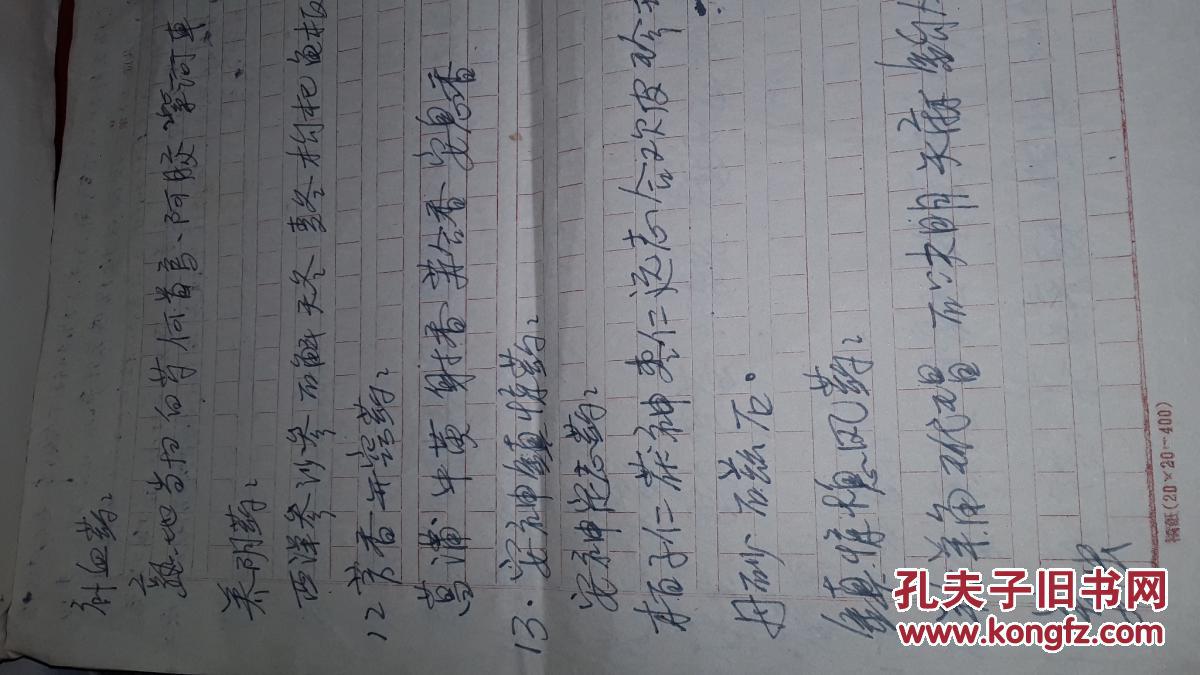 补血药:
熟地 当归 白芍 何首乌、阿胶 紫河车
养阴药:
西洋参 沙参 石斛 天冬 麦冬 枸杞 龟板
12 芳香开窍药:
菖蒲 牛黄 射香 苏合香 安息香
13. 安神镇惊药:
安神定志药:
柏子仁 茯神 枣仁 远志 合欢皮
丹砂 石 磁石。
镇惊熄风药:
羊角 代赭石 决明 天麻 钩
稿纸(20×20=400)
孔夫子旧书网
www.kongfz.com